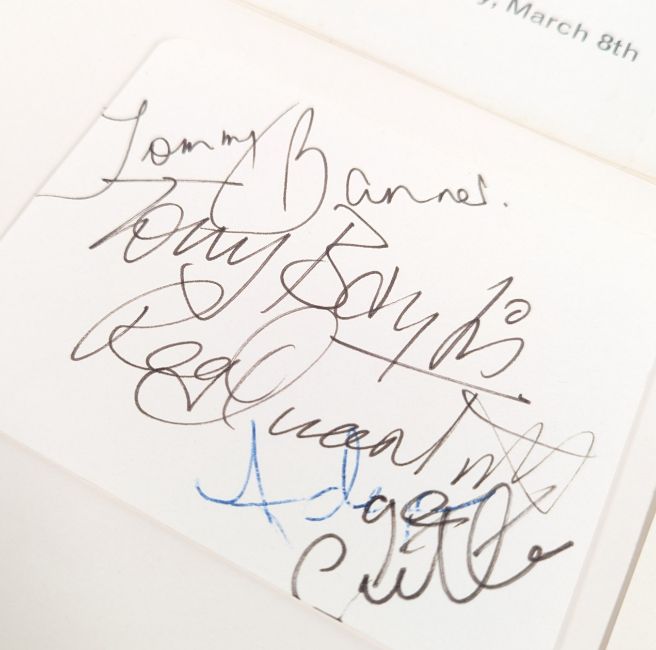 y, March 8th
Tommy Banner.
Tony Baylis
Reg Quantrill
Adge
Cutler